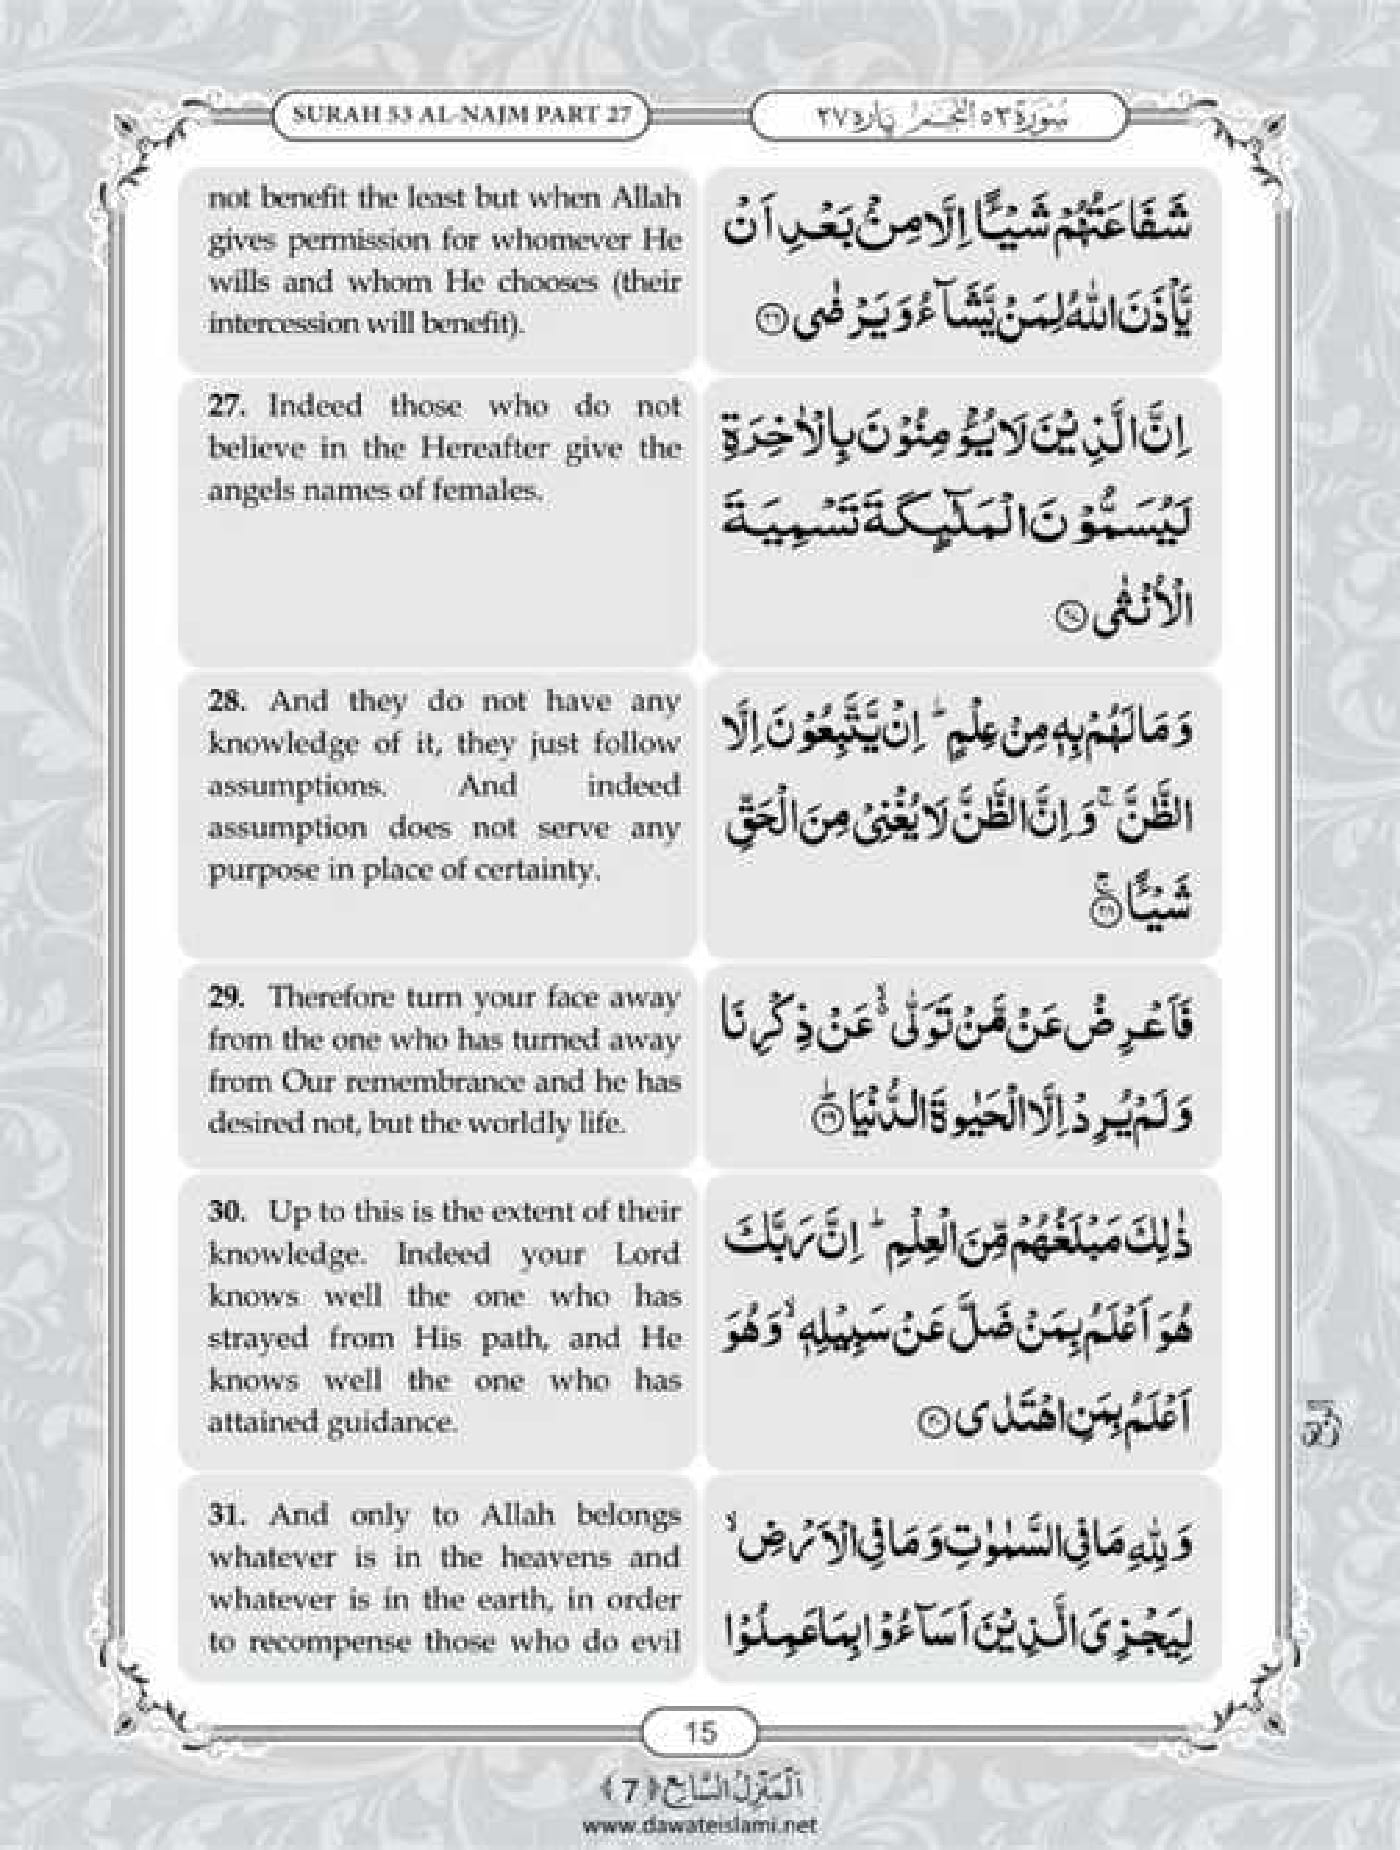 SURAH 53 AL-NAJM PART 27
سُوْرَةُ ٥٣ اَلنَّجْمُ پاره ٢٧
not benefit the least but when Allah
gives permission for whomever He
wills and whom He chooses (their
intercession will benefit).
شَفَاعَتُهُمْ شَیْـًٔا اِلَّا مِنْۢ بَعْدِ اَنْ
یَّاْذَنَ اللّٰهُ لِمَنْ یَّشَآءُ وَ یَرْضٰى ﴿۲۶﴾
27. Indeed those who do not
believe in the Hereafter give the
angels names of females.
اِنَّ الَّذِیْنَ لَا یُؤْمِنُوْنَ بِالْاٰخِرَةِ
لَیُسَمُّوْنَ الْمَلٰٓىٕكَةَ تَسْمِیَةَ
الْاُنْثٰى ﴿۲۷﴾
28. And they do not have any
knowledge of it, they just follow
assumptions. And indeed
assumption does not serve any
purpose in place of certainty.
وَ مَا لَهُمْ بِهٖ مِنْ عِلْمٍؕ اِنْ یَّتَّبِعُوْنَ اِلَّا
الظَّنَّۚ وَ اِنَّ الظَّنَّ لَا یُغْنِیْ مِنَ الْحَقِّ
شَیْـًٔاۚ ﴿۲۸﴾
29. Therefore turn your face away
from the one who has turned away
from Our remembrance and he has
desired not, but the worldly life.
فَاَعْرِضْ عَنْ مَّنْ تَوَلّٰى ﳔ عَنْ ذِكْرِنَا
وَ لَمْ یُرِدْ اِلَّا الْحَیٰوةَ الدُّنْیَاؕ ﴿۲۹﴾
30. Up to this is the extent of their
knowledge. Indeed your Lord
knows well the one who has
strayed from His path, and He
knows well the one who has
attained guidance.
ذٰلِكَ مَبْلَغُهُمْ مِّنَ الْعِلْمِؕ اِنَّ رَبَّكَ
هُوَ اَعْلَمُ بِمَنْ ضَلَّ عَنْ سَبِیْلِهٖۙ وَ هُوَ
اَعْلَمُ بِمَنِ اهْتَدٰى ﴿۳۰﴾
31. And only to Allah belongs
whatever is in the heavens and
whatever is in the earth, in order
to recompense those who do evil
وَ لِلّٰهِ مَا فِی السَّمٰوٰتِ وَ مَا فِی الْاَرْضِۙ
لِیَجْزِیَ الَّذِیْنَ اَسَآءُوْا بِمَا عَمِلُوْا
15
اَلْمَنْزِلُ السَّابِعُ ﴿7﴾
www.dawateislami.net